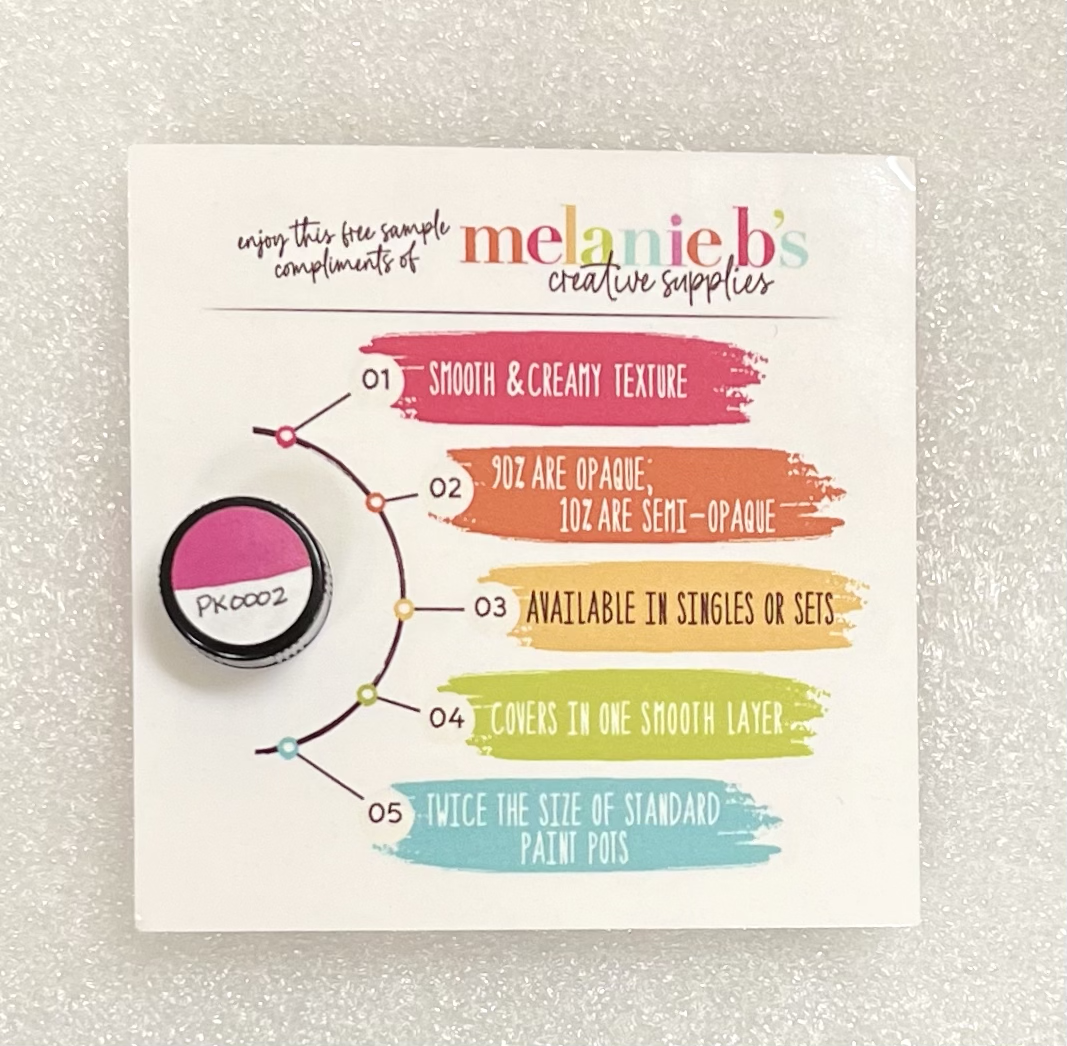 enjoy this free sample
compliments of
melanie b's
creative supplies
01 SMOOTH & CREAMY TEXTURE
02 90% ARE OPAQUE;
10% ARE SEMI-OPAQUE
PK0002
03 AVAILABLE IN SINGLES OR SETS
04 COVERS IN ONE SMOOTH LAYER
05 TWICE THE SIZE OF STANDARD
PAINT POTS